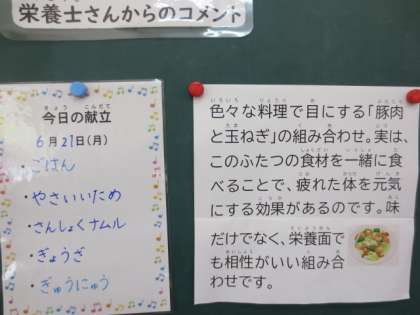 栄養士さんからのコメント
きょう こんだて
今日の献立
6月21日(月)
・ごはん
・やさいいため
・さんしょくナムル
・ぎょうざ
・ぎゅうにゅう
色々な料理で目にする「豚肉
と玉ねぎ」の組み合わせ。実は、
このふたつの食材を一緒に食
べることで、疲れた体を元気
にする効果があるのです。味
だけでなく、栄養面で
も相性がいい組み合
わせです。